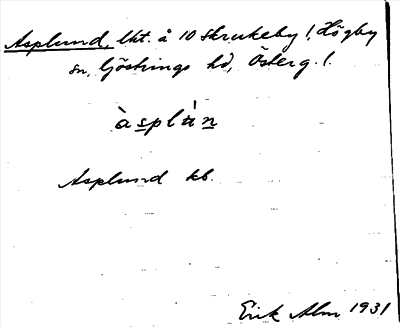 Asplund, lht. å 10 Skrukeby /, Högby
sn, Göstrings hd, Österg. /.
àsplán
Asplund kb.
Erik Alm 1931